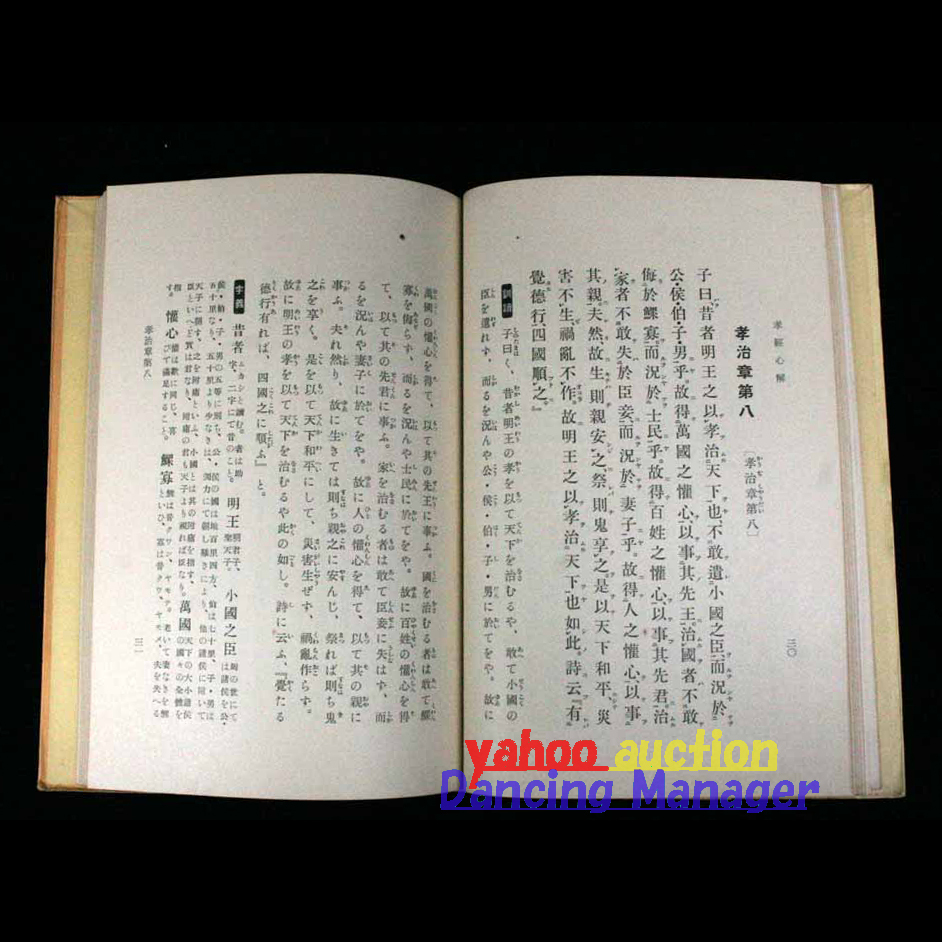 孝經心解
孝治章第八
〔孝治章第八〕
子曰、昔者明王之以孝治天下也、不敢遺小國之臣、而況於
公・侯・伯・子・男乎。故得萬國之懽心、以事其先王。治國者不敢
侮於鰥寡、而況於士民乎。故得百姓之懽心、以事其先君。治
家者不敢失於臣妾、而況於妻子乎。故得人之懽心、以事
其親。夫然、故生則親安之、祭則鬼享之。是以天下和平、災
害不生、禍亂不作。故明王之以孝治天下也如此。詩云、『有
覺德行、四國順之。』
訓讀 子曰く、昔者明王の孝を以て天下を治むるや、敢て小國の
臣を遺れず、而るを況んや公・侯・伯・子・男に於てをや。故に
三〇
萬國の懽心を得て、以て其の先王に事ふ。國を治むる者は敢て鰥
寡を侮らず、而るを況んや士民に於てをや。故に百姓の懽心を得
て、以て其の先君に事ふ。家を治むる者は敢て臣妾に失はず、而
るを況んや妻子に於てをや。故に人の懽心を得て、以て其の親に
事ふ。夫れ然り、故に生きては則ち親之に安んじ、祭れば則ち鬼
之を享く。是を以て天下和平にして、災害生ぜず、禍亂作らず。
故に明王の孝を以て天下を治むるや此の如し。詩に云ふ、『覺たる
德行有れば、四國之に順ふ』と。
字義 昔者 ムカシと讀む。者は助字、二字にて昔のこと。 明王 明君子、聖天子。 小國之臣
侯・伯・子・男の五等に別ち、公・侯の國は地百里四方、伯は七十里、子・男は
五十里なり、五十里より少なきは、
天子に屬す、之を附庸といふ、小國とは其の附庸を指す、
臣といへど實は君なり、附庸の君も天子より視れば臣なり。 萬國 天下の大小諸侯の國々の全體を
指す。 懽心 懽は歡に同じ、喜んで滿足すること。 鰥寡
孝治章第八
三一
yahoo auction
Dancing Manager